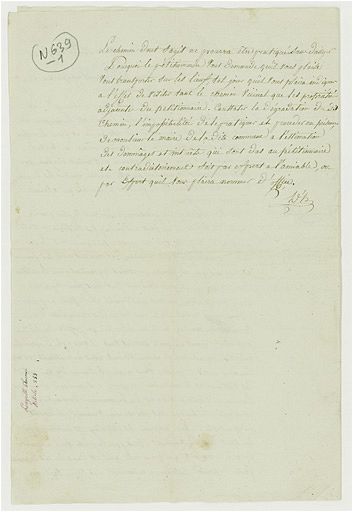 N639
1
Le chemin dont s'agit ne pourra être pratiqué sans danger
Pourquoi le pétitionnaire vous demande qu'il vous plaise
vous transporter sur les lieux tel jour qu'il vous plaira indiquer
à l'effet de visiter tant le chemin vicinal que les propriétés
adjacentes du pétitionnaire. Constater la dégradation du dit
chemin, l'impossibilité de le pratiquer et procéder en présence
de monsieur le maire de la dite commune à l'estimation
des dommages et intérêts qui sont dus au pétitionnaire
et contradictoirement soit par expert à l'amiable, ou
par Expert qu'il vous plaira nommer d'office.